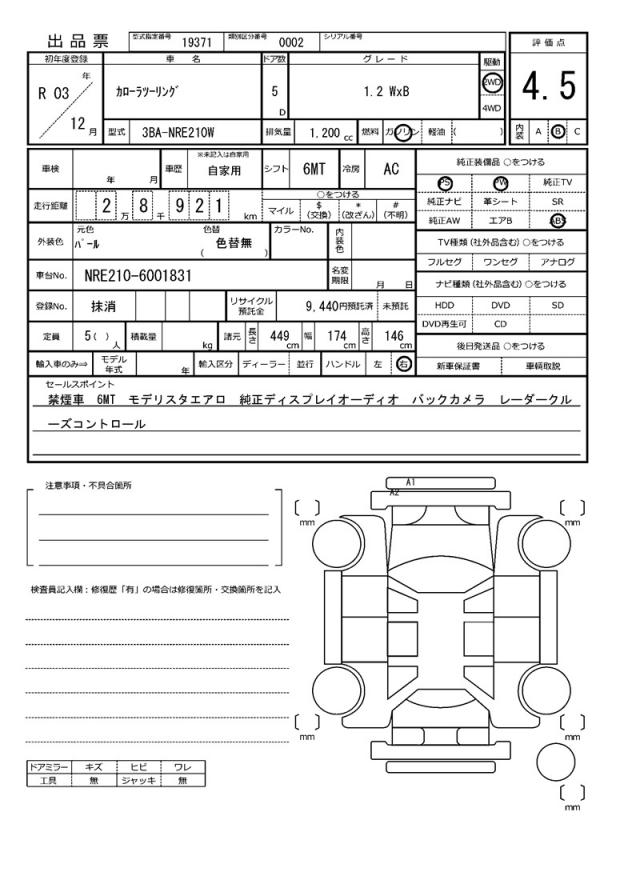 出品票 型式指定番号 19371 類別区分番号 0002 シリアル番号
評価点
初年度登録 車名 ドア数 グレード 駆動
R 03 年 カローラツーリング 5 D 1.2 WxB 2WD 4.5
4WD
12月 型式 3BA-NRE210W 排気量 1.200 cc 燃料 ガソリン 軽油 ( ) 内装 A B C
車検 年 月 車歴 ※未記入は自家用 自家用 シフト 6MT 冷房 AC
純正装備品 ○をつける
PS PW 純正TV
走行距離 2万 8千 9 2 1 km ○をつける
マイル $(交換) *(改ざん) #(不明)
純正ナビ 革シート SR
純正AW エアB ABS
外装色 元色 パール 色替 色替無 ( ) カラーNo. 内装色
TV種類(社外品含む)○をつける
フルセグ ワンセグ アナログ
車台No. NRE210-6001831 名変期限 月 日
ナビ種類(社外品含む)○をつける
登録No. 抹消 リサイクル預託金 9,440円預託済 未預託
HDD DVD SD
DVD再生可 CD
定員 5( )人 積載量 kg 諸元 長さ 449cm 幅 174cm 高さ 146cm
後日発送品 ○をつける
輸入車のみ⇒ モデル年式 年 輸入区分 ディーラー 並行 ハンドル 左 右
新車保証書 車輌取説
セールスポイント
禁煙車 6MT モデリスタエアロ 純正ディスプレイオーディオ バックカメラ レーダークル
ーズコントロール
注意事項・不具合箇所
A1
A2
mm mm
検査員記入欄:修復歴「有」の場合は修復箇所・交換箇所を記入
mm mm
ドアミラー キズ ヒビ ワレ
工具 無 ジャッキ 無
mm